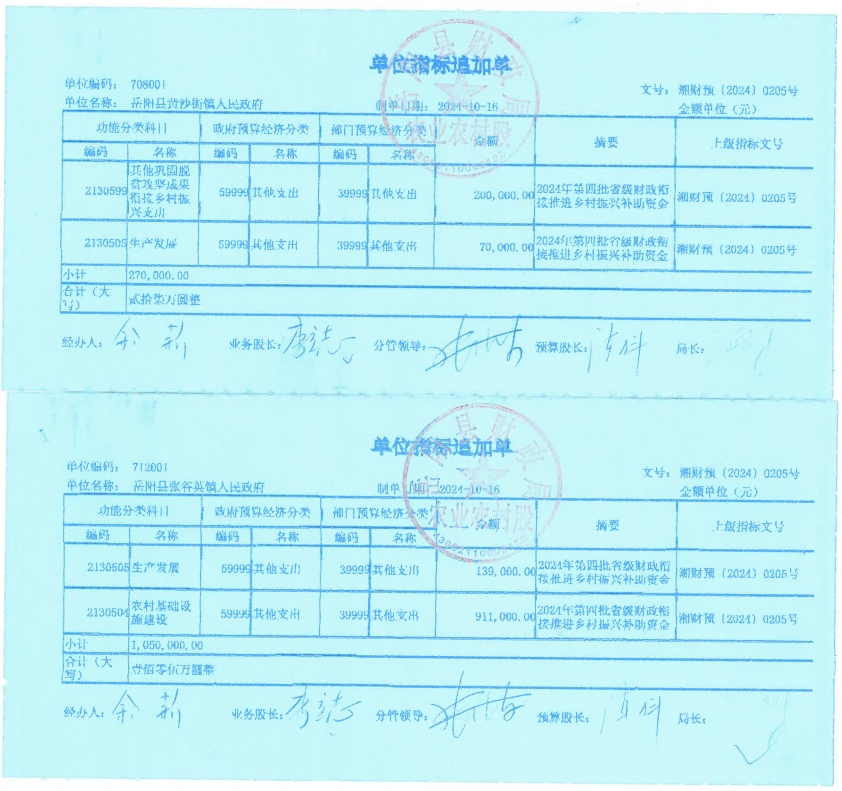 单位指标追加单
单位编码: 708001 文号: 湘财预〔2024〕0205号
单位名称: 岳阳县黄沙街镇人民政府 制单日期: 2024-10-16 金额单位（元）
功能分类科目 政府预算经济分类 部门预算经济分类 金额 摘要 上级指标文号
编码 名称 编码 名称 编码 名称
2130599 其他巩固脱贫攻坚成果衔接乡村振兴支出 59999 其他支出 39999 其他支出 200,000.00 2024年第四批省级财政衔接推进乡村振兴补助资金 湘财预〔2024〕0205号
2130505 生产发展 59999 其他支出 39999 其他支出 70,000.00 2024年第四批省级财政衔接推进乡村振兴补助资金 湘财预〔2024〕0205号
小计 270,000.00
合计（大写） 贰拾柒万圆整
经办人: 业务股长: 分管领导: 预算股长: 局长:
县财政局
农业农村股
单位指标追加单
单位编码: 712001 文号: 湘财预〔2024〕0205号
单位名称: 岳阳县张谷英镇人民政府 制单日期: 2024-10-16 金额单位（元）
功能分类科目 政府预算经济分类 部门预算经济分类 金额 摘要 上级指标文号
编码 名称 编码 名称 编码 名称
2130505 生产发展 59999 其他支出 39999 其他支出 139,000.00 2024年第四批省级财政衔接推进乡村振兴补助资金 湘财预〔2024〕0205号
2130504 农村基础设施建设 59999 其他支出 39999 其他支出 911,000.00 2024年第四批省级财政衔接推进乡村振兴补助资金 湘财预〔2024〕0205号
小计 1,050,000.00
合计（大写） 壹佰零伍万圆整
经办人: 业务股长: 分管领导: 预算股长: 局长:
县财政局
农业农村股